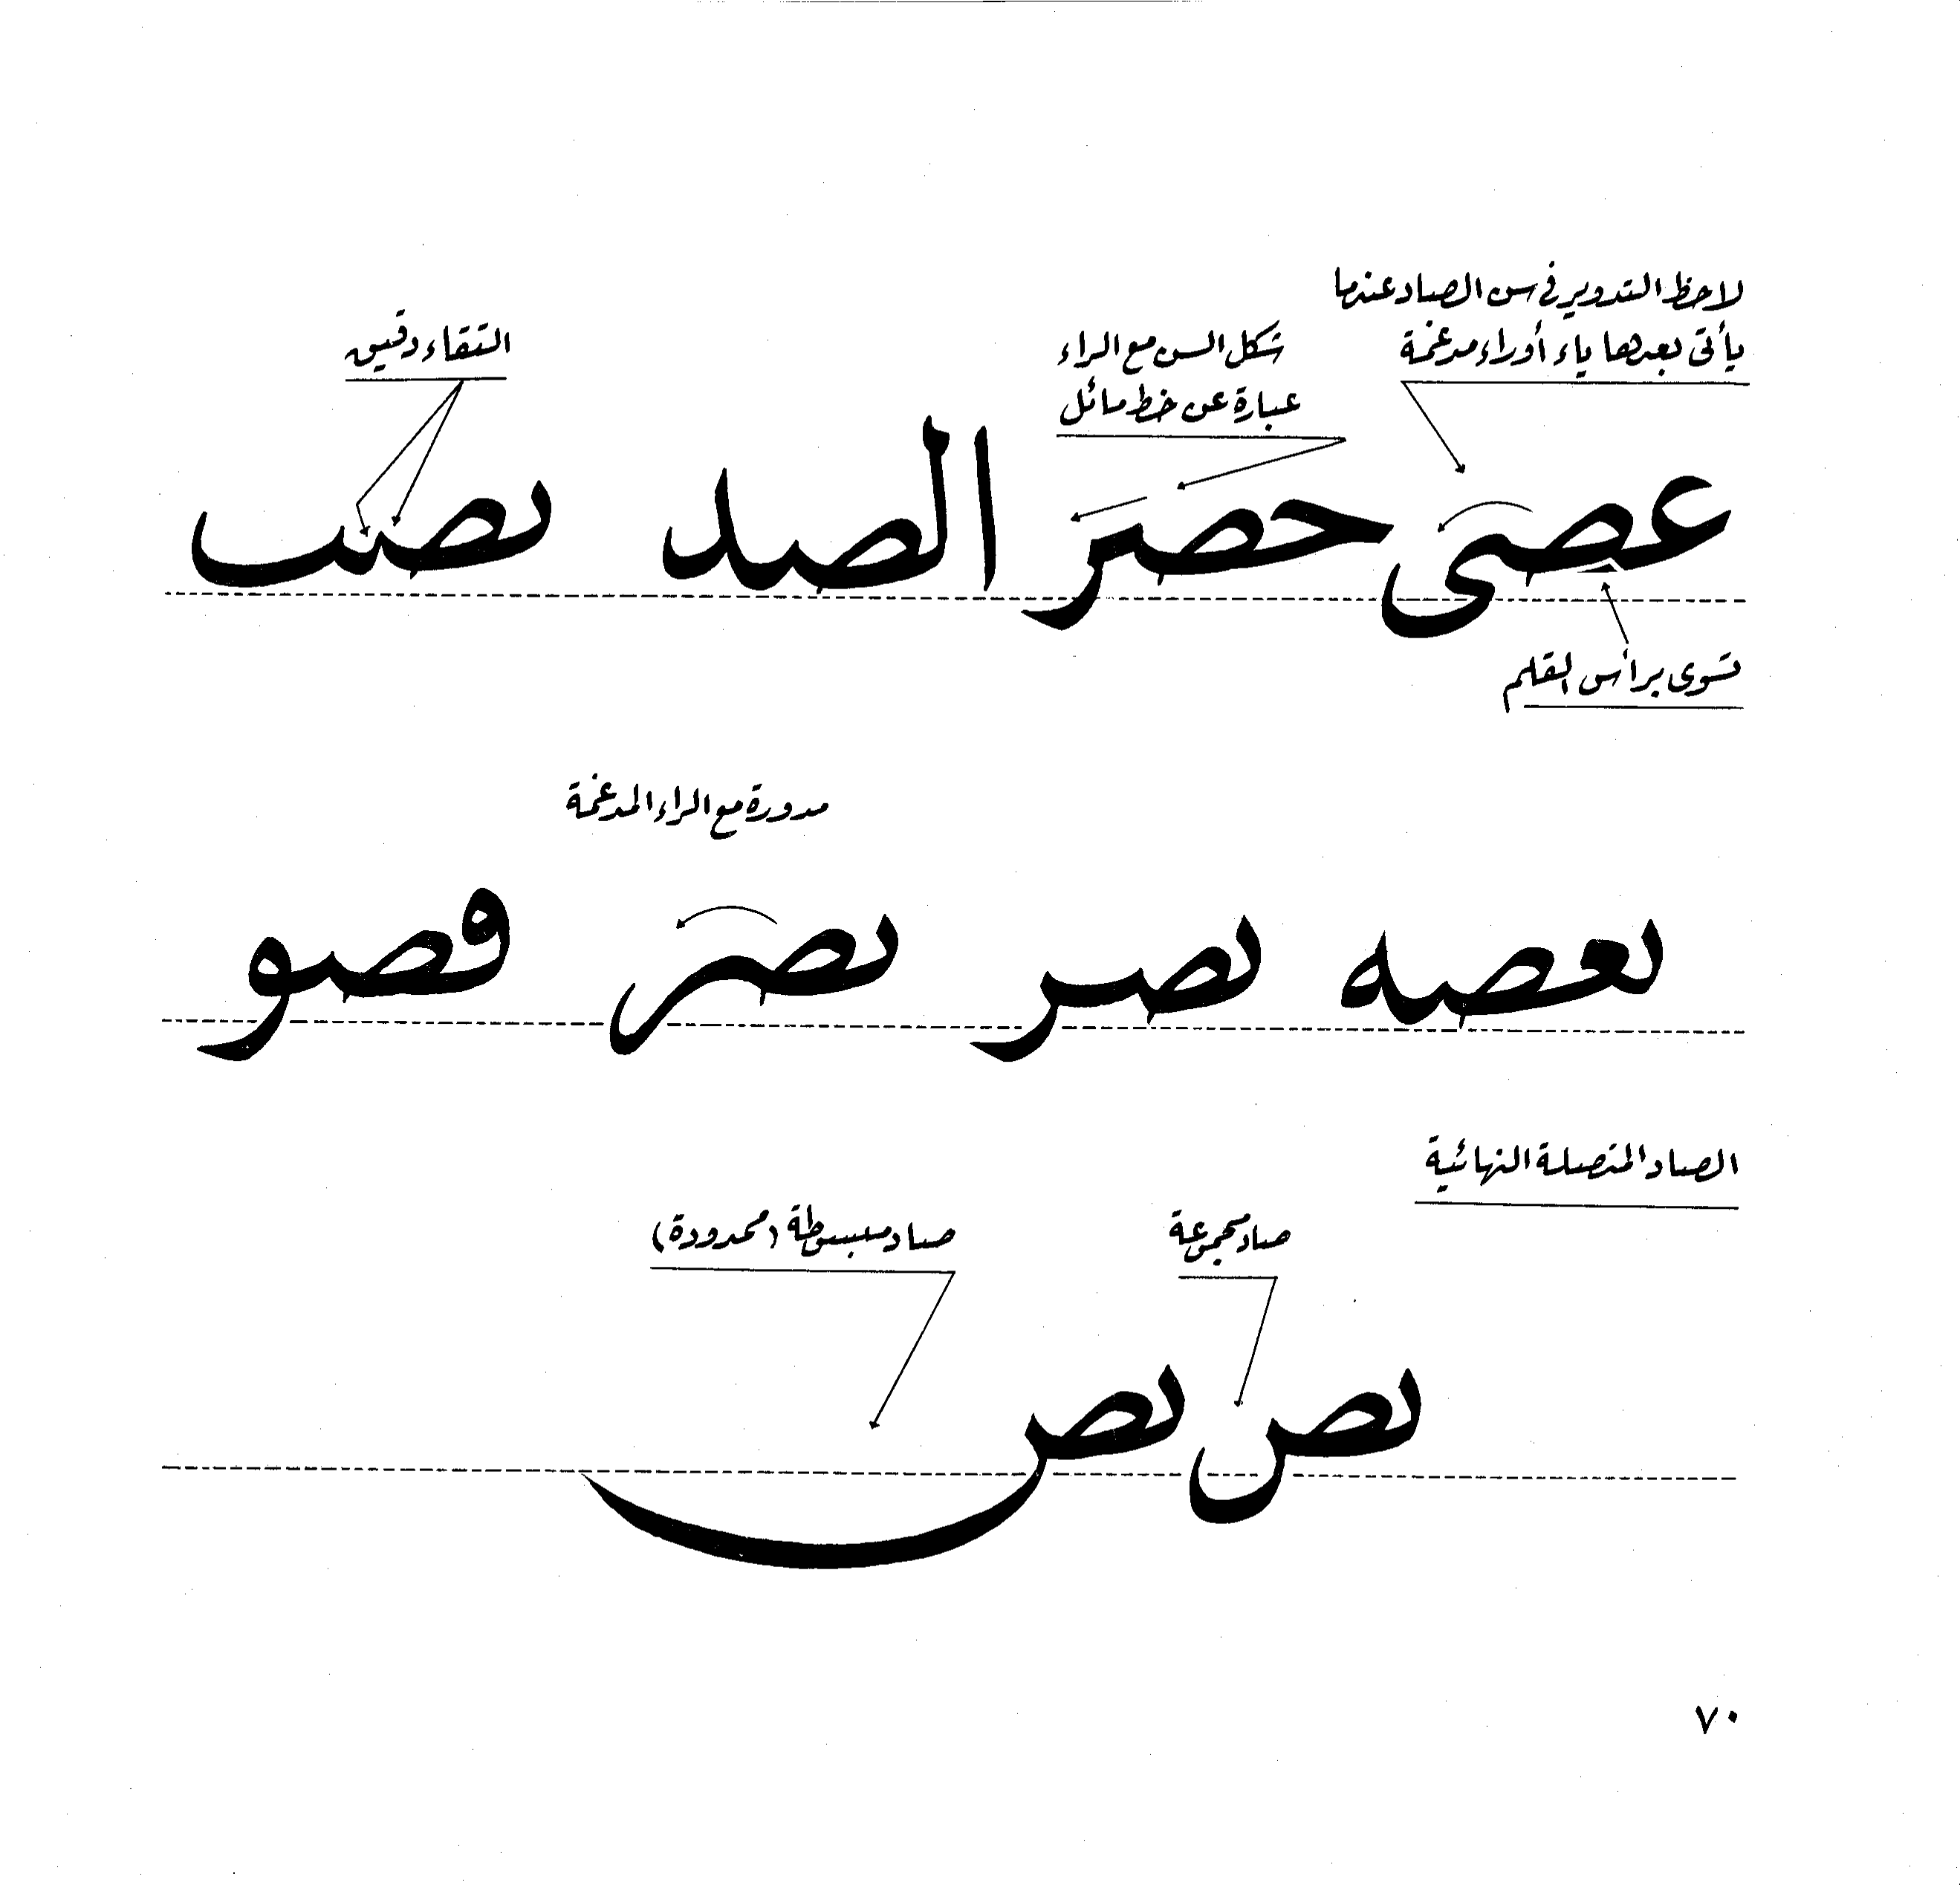 لاحظ التدوير في سن الصاد عندما
يأتى بعدها ياء أو راء مدغمة
شكل السن مع الراء
عبارة عن خط مائل
التقاء دقيق
عصى حصر الصد ىصٮ
تسوى برأس القلم
مدورة مع الراء المدغمة
ىعصه ىصر ىصر ڡصو
الصاد المتصلة النهائية
صاد مجموعة
صاد مبسوطة (ممدودة)
ىص ىص
٧٠